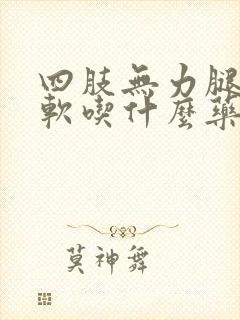 四肢無力腿
軟喫什麼藥
莫神舞